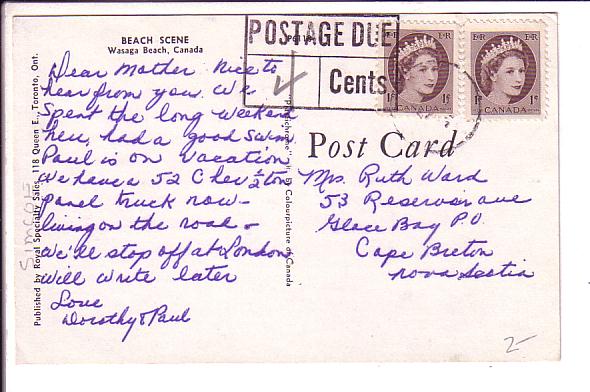 BEACH SCENE
Wasaga Beach, Canada
Dear Mother Nice to
hear from you. We
Spent the long weekend
here, had a good swim.
Paul is on vacation
we have a 52 Chev ½ ton
panel truck now-
living on the road -
We'll stop off at London
will write later
Love
Dorothy & Paul
Published by Royal Specialty Sales, 118 Queen E., Toronto, Ont.
SIMCOE
POSTAGE DUE
Cents
E R
CANADA
1¢
E R
CANADA
1¢
Post Card
Mrs. Ruth Ward
53 Reservoir ave
Glace Bay P.O
Cape Breton
Nova Scotia
by Colourpicture of Canada
2-